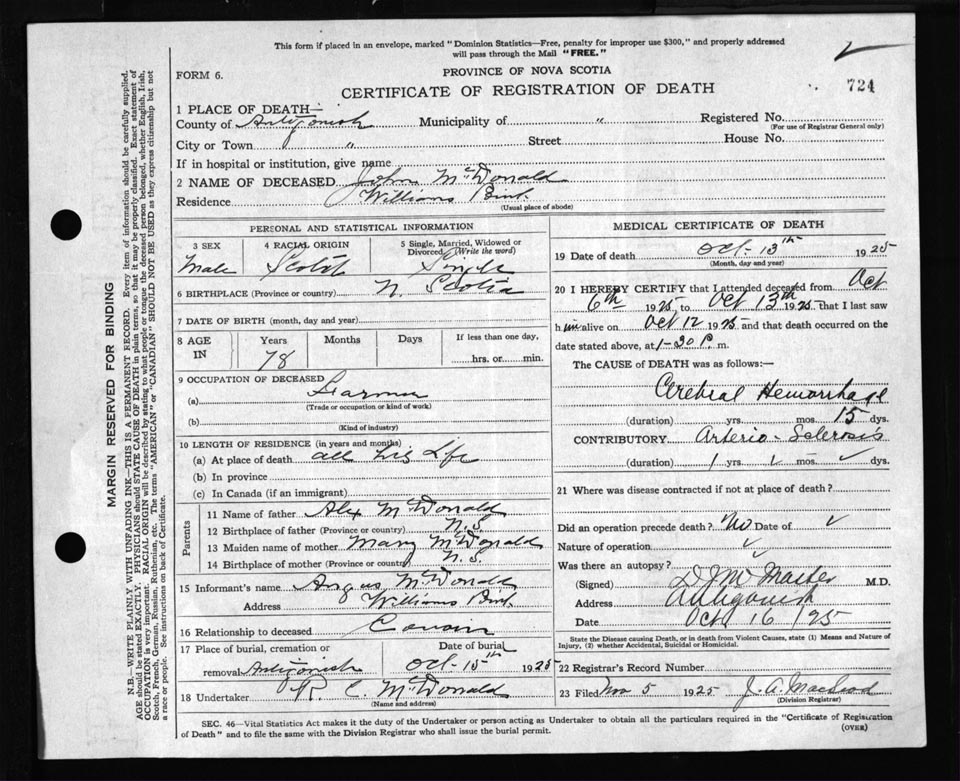 This form if placed in an envelope, marked "Dominion Statistics—Free, penalty for improper use $300," and properly addressed
will pass through the Mail "FREE."
FORM 6.
PROVINCE OF NOVA SCOTIA
CERTIFICATE OF REGISTRATION OF DEATH
724
1 PLACE OF DEATH—
County of Antigonish Municipality of " Registered No.
(For use of Registrar General only)
City or Town " Street House No.
If in hospital or institution, give name
2 NAME OF DECEASED John McDonald
Residence Williams Point
(Usual place of abode)
PERSONAL AND STATISTICAL INFORMATION
3 SEX 4 RACIAL ORIGIN 5 Single, Married, Widowed or
Divorced (Write the word)
Male Scotch Single
6 BIRTHPLACE (Province or country) N. Scotia
7 DATE OF BIRTH (month, day and year)
8 AGE Years Months Days If less than one day,
IN 78 hrs. or min.
9 OCCUPATION OF DECEASED
(a) Farmer
(Trade or occupation or kind of work)
(b)
(Kind of industry)
10 LENGTH OF RESIDENCE (in years and months)
(a) At place of death all his Life
(b) In province
(c) In Canada (if an immigrant)
Parents
11 Name of father Alex McDonald
12 Birthplace of father (Province or country) N.S.
13 Maiden name of mother Mary McDonald
14 Birthplace of mother (Province or country) N.S.
15 Informant's name Angus McDonald
Address Williams Point
16 Relationship to deceased Cousin
17 Place of burial, cremation or Date of burial
removal Antigonish Oct-15th 1925
18 Undertaker R. C. McDonald
(Name and address)
MEDICAL CERTIFICATE OF DEATH
19 Date of death Oct-13th 1925
(Month, day and year)
20 I HEREBY CERTIFY that I attended deceased from Oct
6th 1925, to Oct 13th 1925, that I last saw
him alive on Oct 12 1925 and that death occurred on the
date stated above, at 1-30 P. m.
The CAUSE of DEATH was as follows:—
Cerebral Hemorrhage
(duration) yrs. mos. 15 dys.
CONTRIBUTORY Arterio-Sclerosis
(duration) 1 yrs. mos. ✓ dys.
21 Where was disease contracted if not at place of death?
Did an operation precede death? No Date of ✓
Nature of operation ✓
Was there an autopsy?
(Signed) M.D.
Address Antigonish
Date Oct 16 1925
State the Disease causing Death, or in death from Violent Causes, state (1) Means and Nature of
Injury, (2) whether Accidental, Suicidal or Homicidal.
22 Registrar's Record Number
23 Filed Nov 5 1925 J. A. MacLeod
(Division Registrar)
SEC. 46—Vital Statistics Act makes it the duty of the Undertaker or person acting as Undertaker to obtain all the particulars required in the "Certificate of Registration
of Death" and to file the same with the Division Registrar who shall issue the burial permit.
(OVER)
MARGIN RESERVED FOR BINDING
N.B.—WRITE PLAINLY WITH UNFADING INK—THIS IS A PERMANENT RECORD. Every item of information should be carefully supplied.
AGE should be stated EXACTLY. PHYSICIANS should STATE CAUSE OF DEATH in plain terms, so that it may be properly classified. Exact statement of
OCCUPATION is very important. RACIAL ORIGIN will be described by stating to what people or tongue the deceased person belonged, whether English, Irish,
Scotch, French, German, Russian, Ruthenian, etc. The terms "AMERICAN" or "CANADIAN" SHOULD NOT BE USED as they express citizenship but not
a race or people. See instructions on back of Certificate.